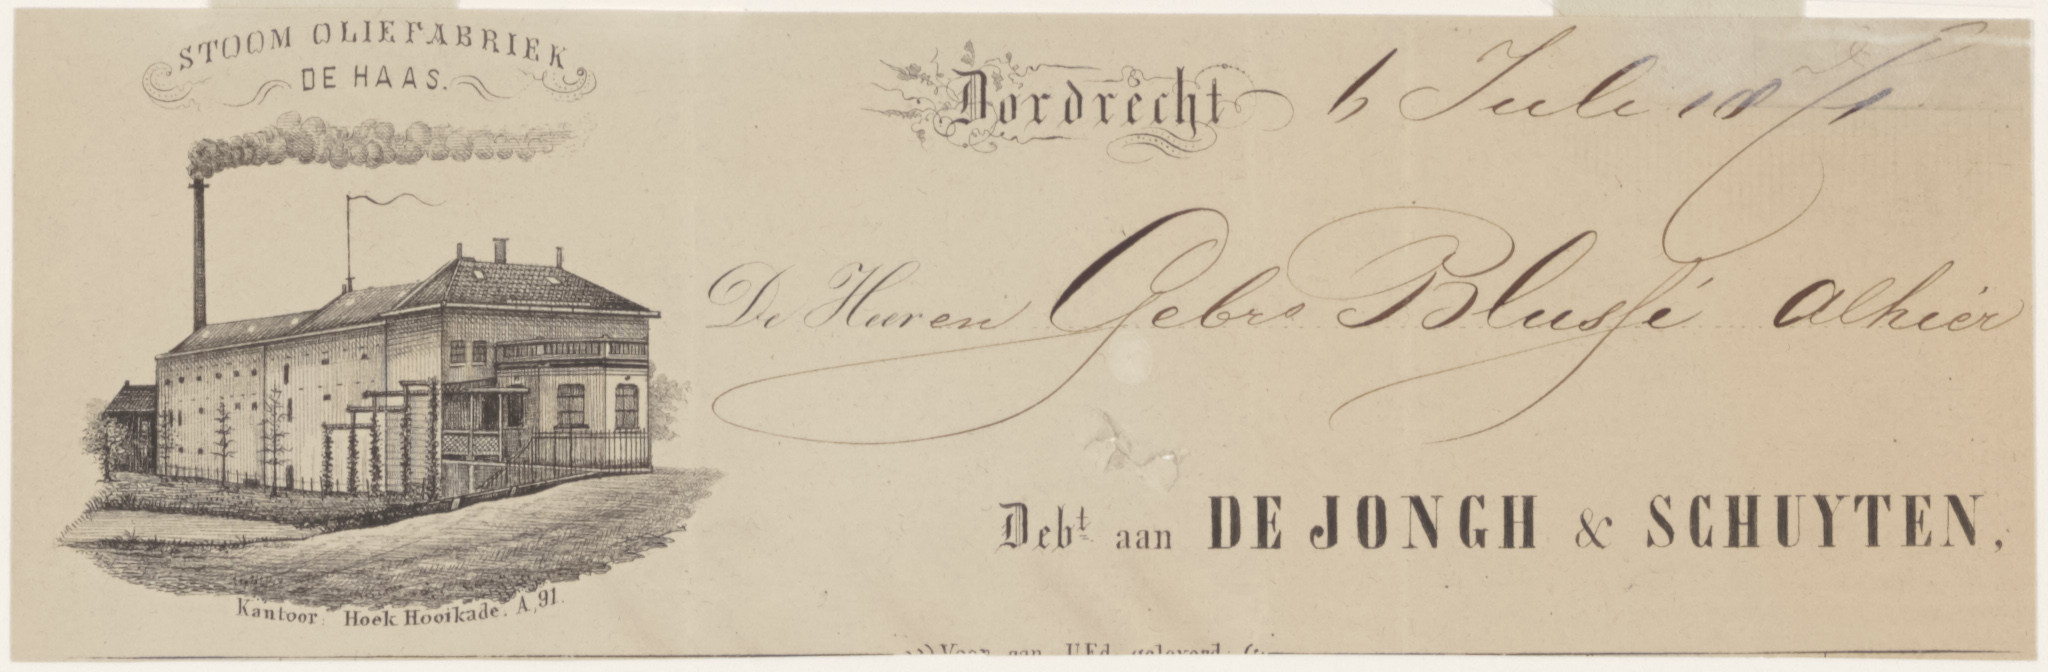 STOOM OLIEFABRIEK
DE HAAS.
Dordrecht 6 Juli 1871
De Heeren Gebrs Blussé Alhier
Debt aan DE JONGH & SCHUYTEN,
Kantoor: Hoek Hooikade. A, 91.
Voor aan UEd. geleverd: